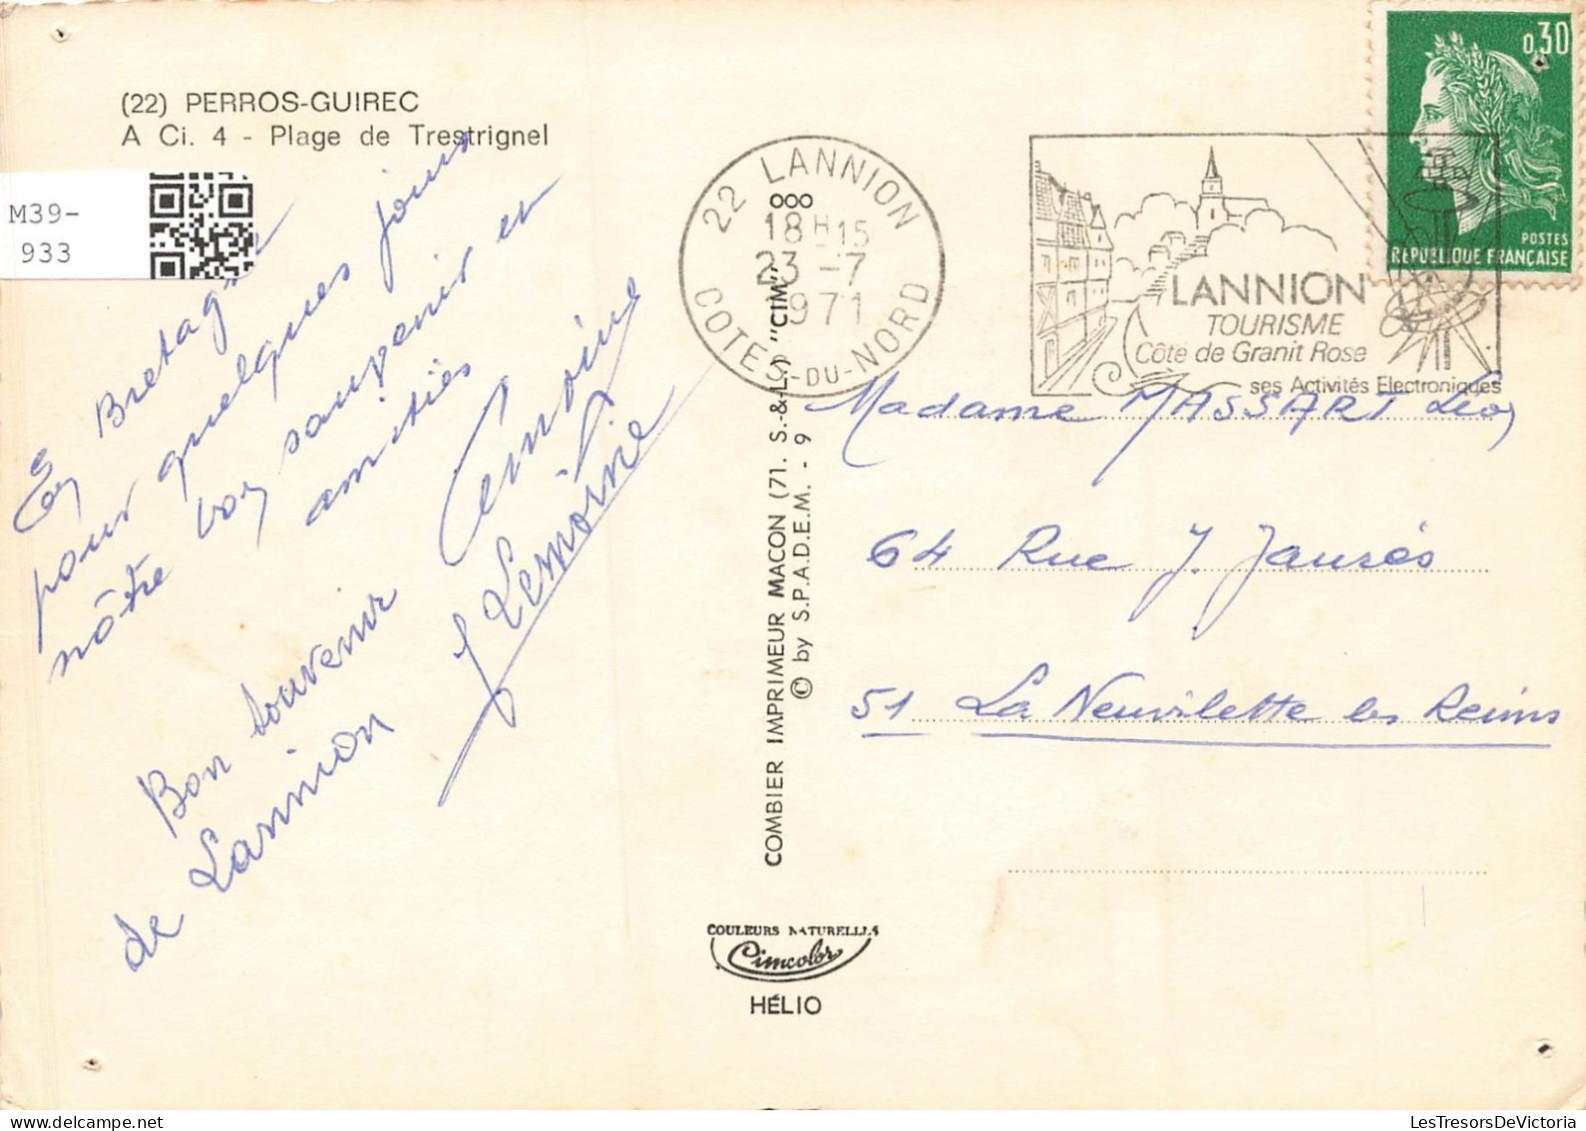 (22) PERROS-GUIREC
A Ci. 4 - Plage de Trestrignel
M39-
933
En Bretagne
pour quelques jours
nôtre bon souvenir en
amitiés
Lemoine
J Lemoine
Bon souvenir
de Lannion
22 LANNION
18H15
23-7
1971
COTES-DU-NORD
LANNION
TOURISME
Côte de Granit Rose
ses Activités Electroniques
0,30
POSTES
REPUBLIQUE FRANÇAISE
COMBIER IMPRIMEUR MACON (71. S.-&-L.) "CIM"
© by S.P.A.D.E.M. - 9
Madame MASSART Léon
64 Rue J. Jaurés
51 La Neuvilette les Reims
COULEURS NATURELLES
Cimcolor
HÉLIO
LesTresorsDeVictoria